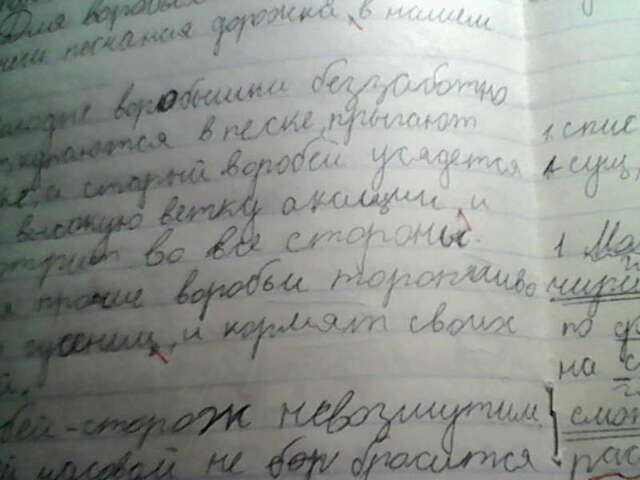 Для воробьёв
песчаная дорожка в нашем
воробышки беззаботно
купаются в песке, прыгают
а старый воробей усядется
высокую ветку акации и
во все стороны.
прочие воробьи торопливо
гусениц и кормят своих
сторож невозмутим.
часовой не бросится
1. спис
сущ,
1 Мо
чири
по
на
смот
рас